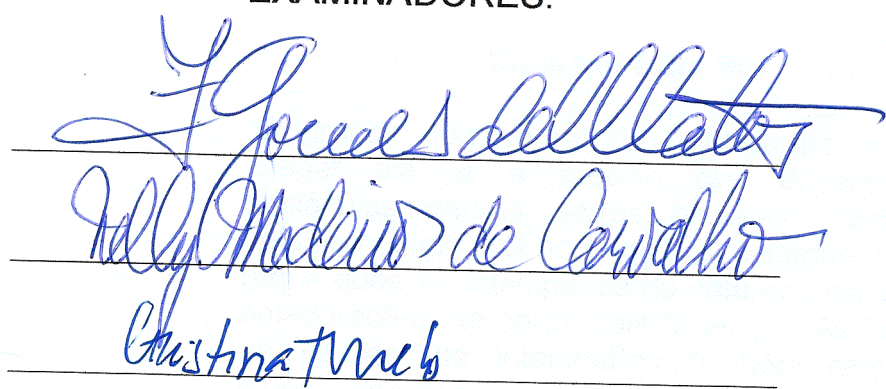 EXAMINADORES:
F Gomes de Matos
Nelly Medeiros de Carvalho
Cristina T Melo